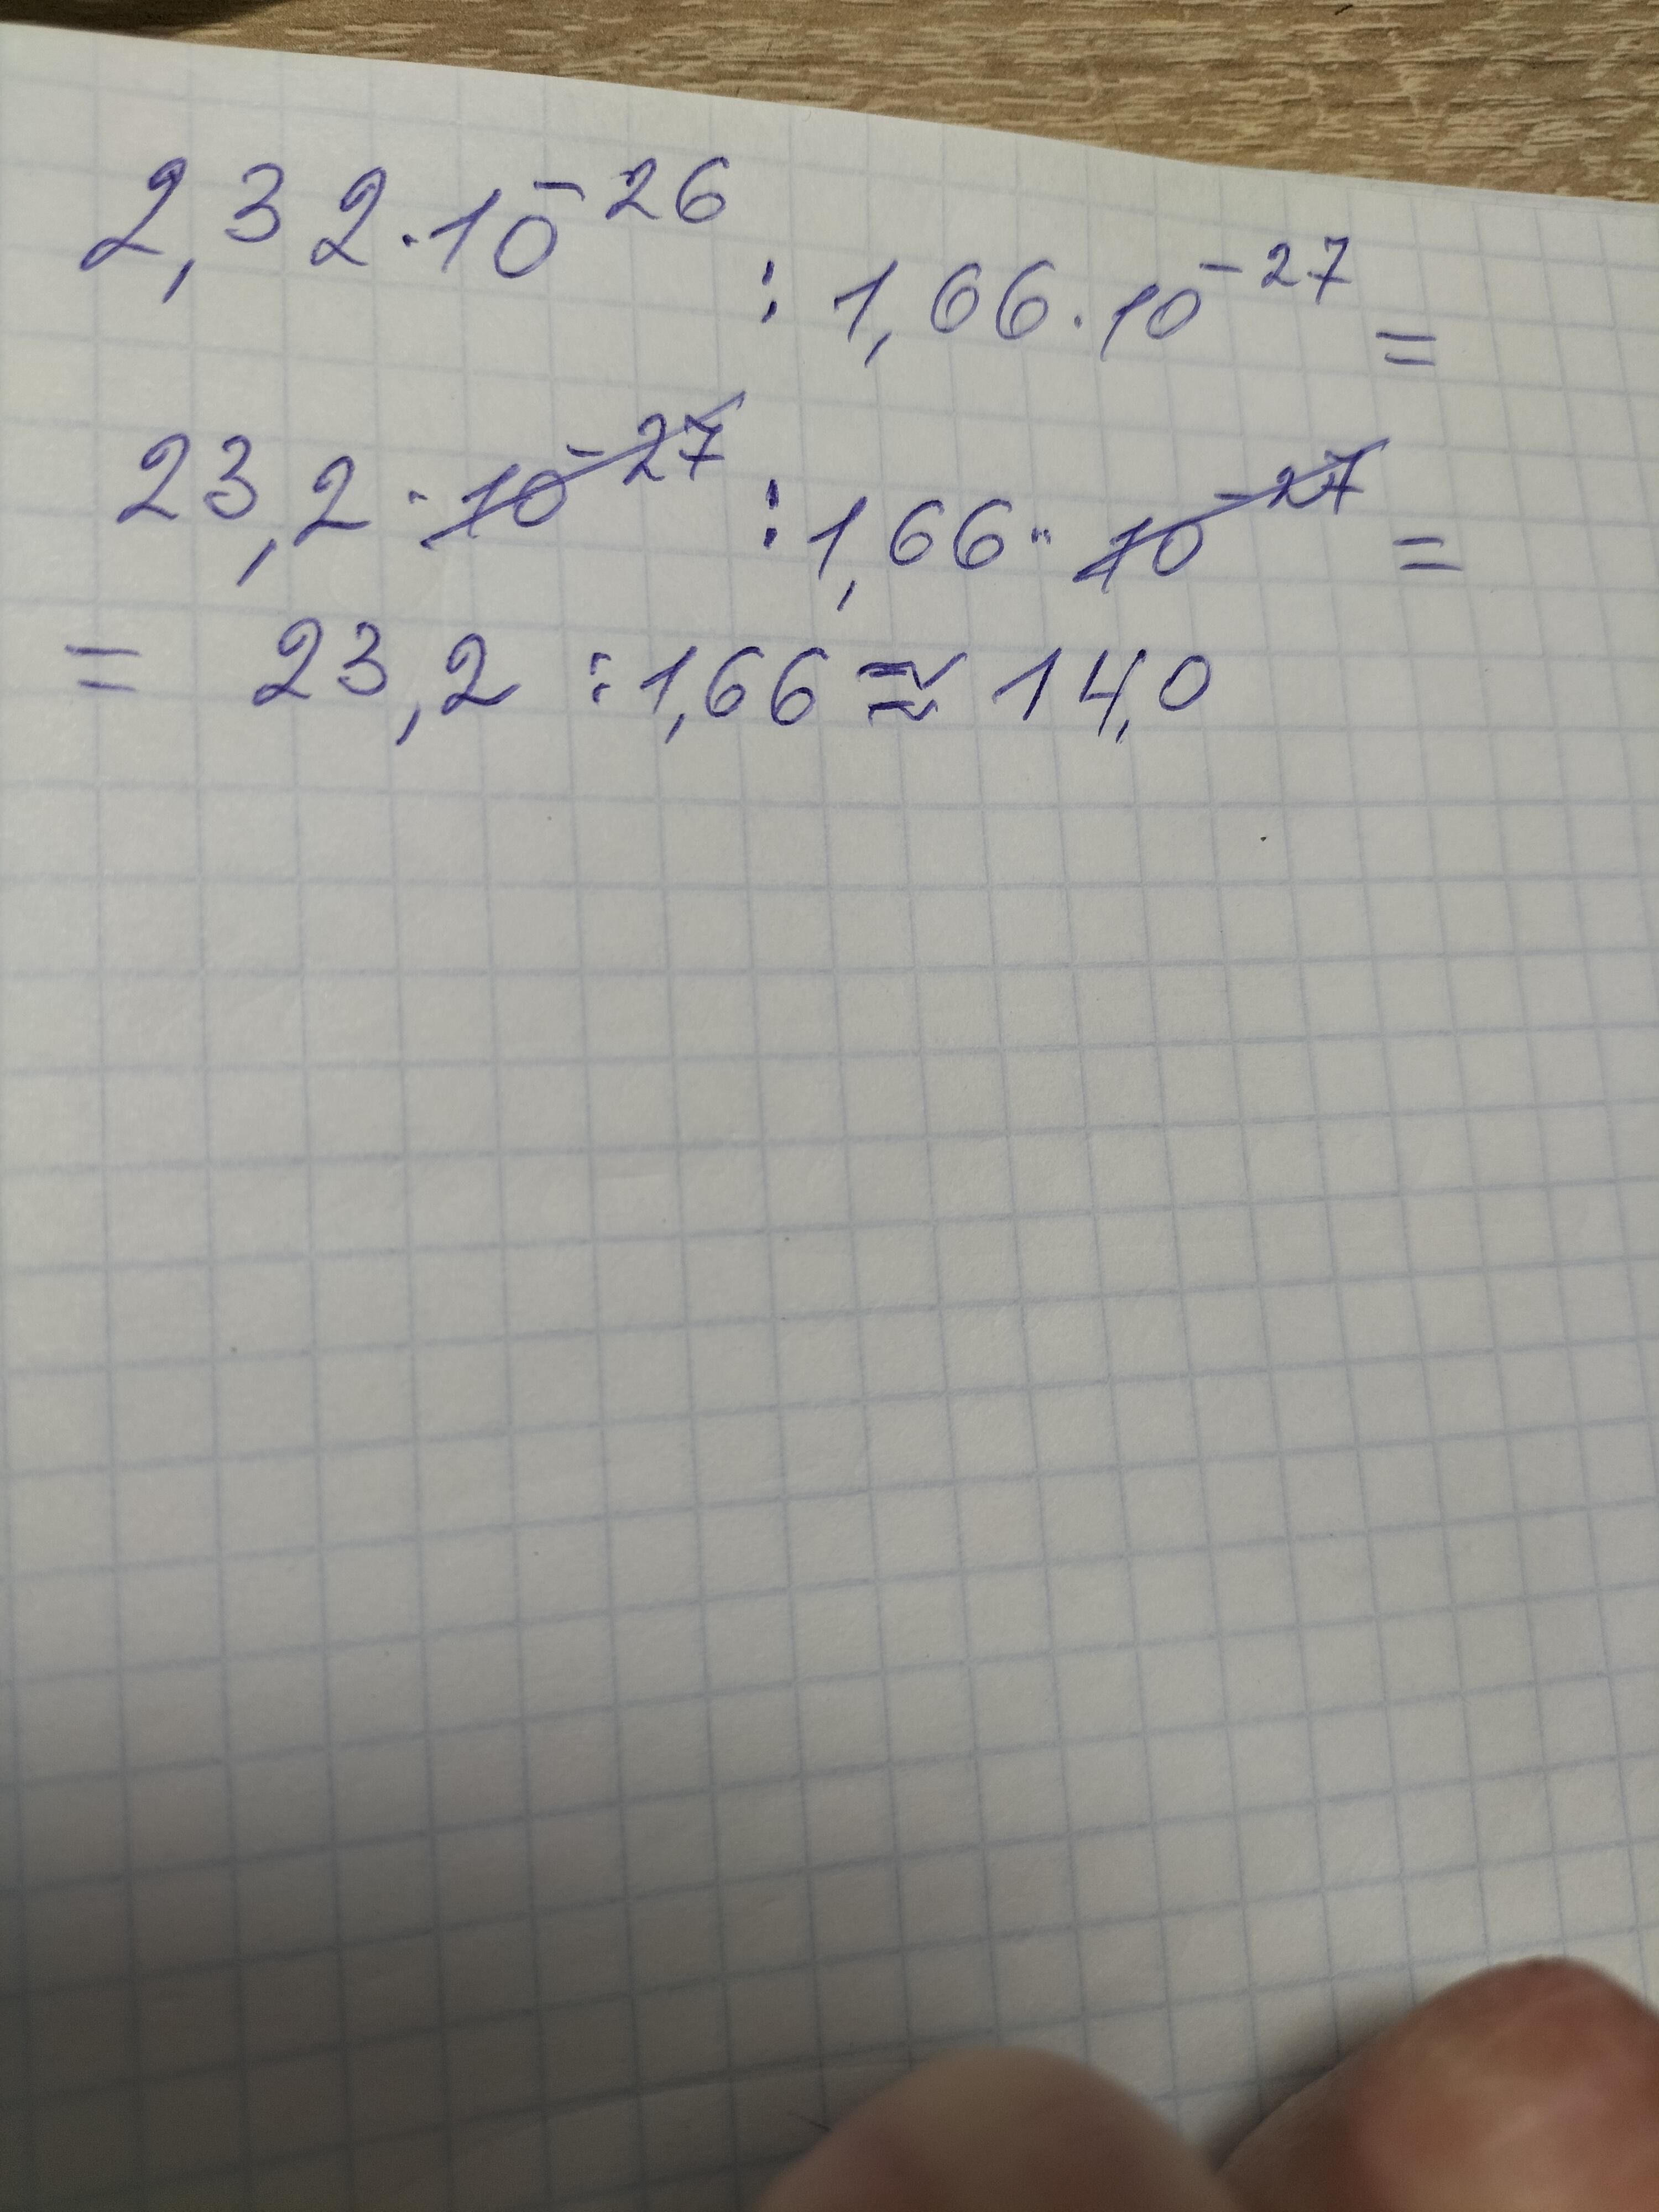 2,32·10⁻²⁶ : 1,66·10⁻²⁷ =
23,2·10⁻²⁷ : 1,66·10⁻²⁷ =
= 23,2 : 1,66 ≈ 14,0